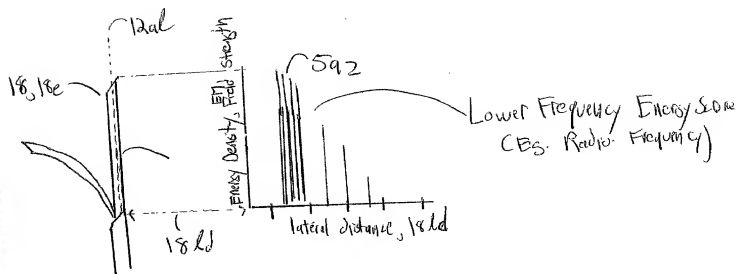 12al
18, 18e
18ld
Energy Density, EM Field Strength
5a2
Lower Frequency Energy Source
(Eg. Radio Frequency)
lateral distance, 18ld